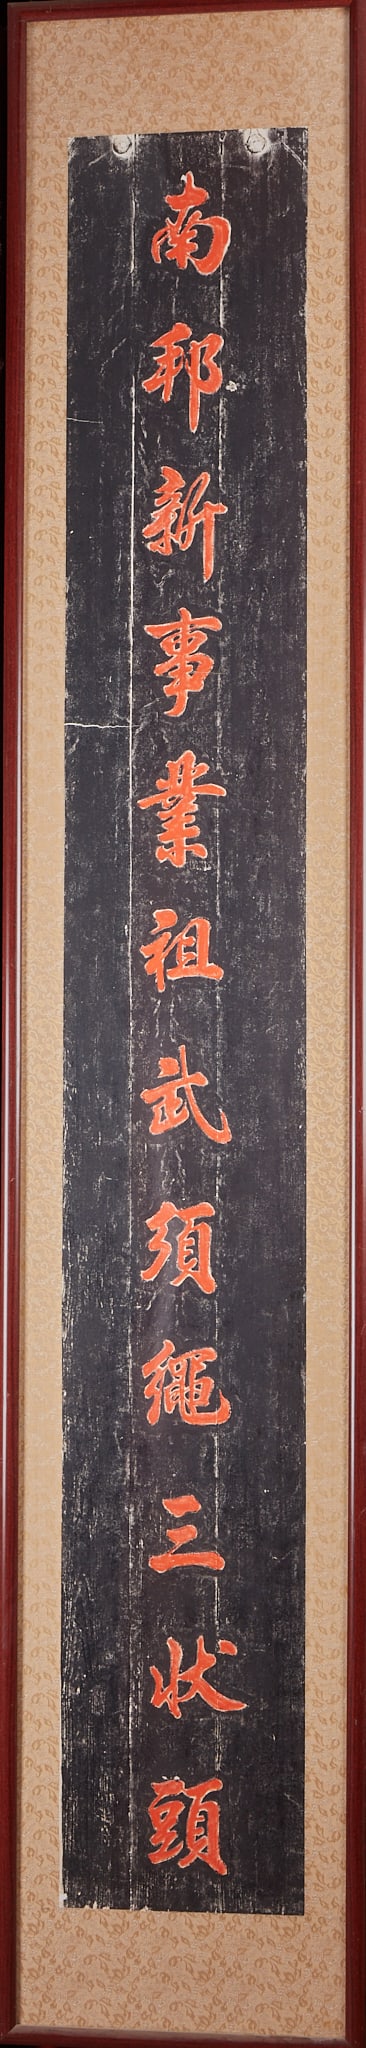 南邦新事業祖武須繩三状頭